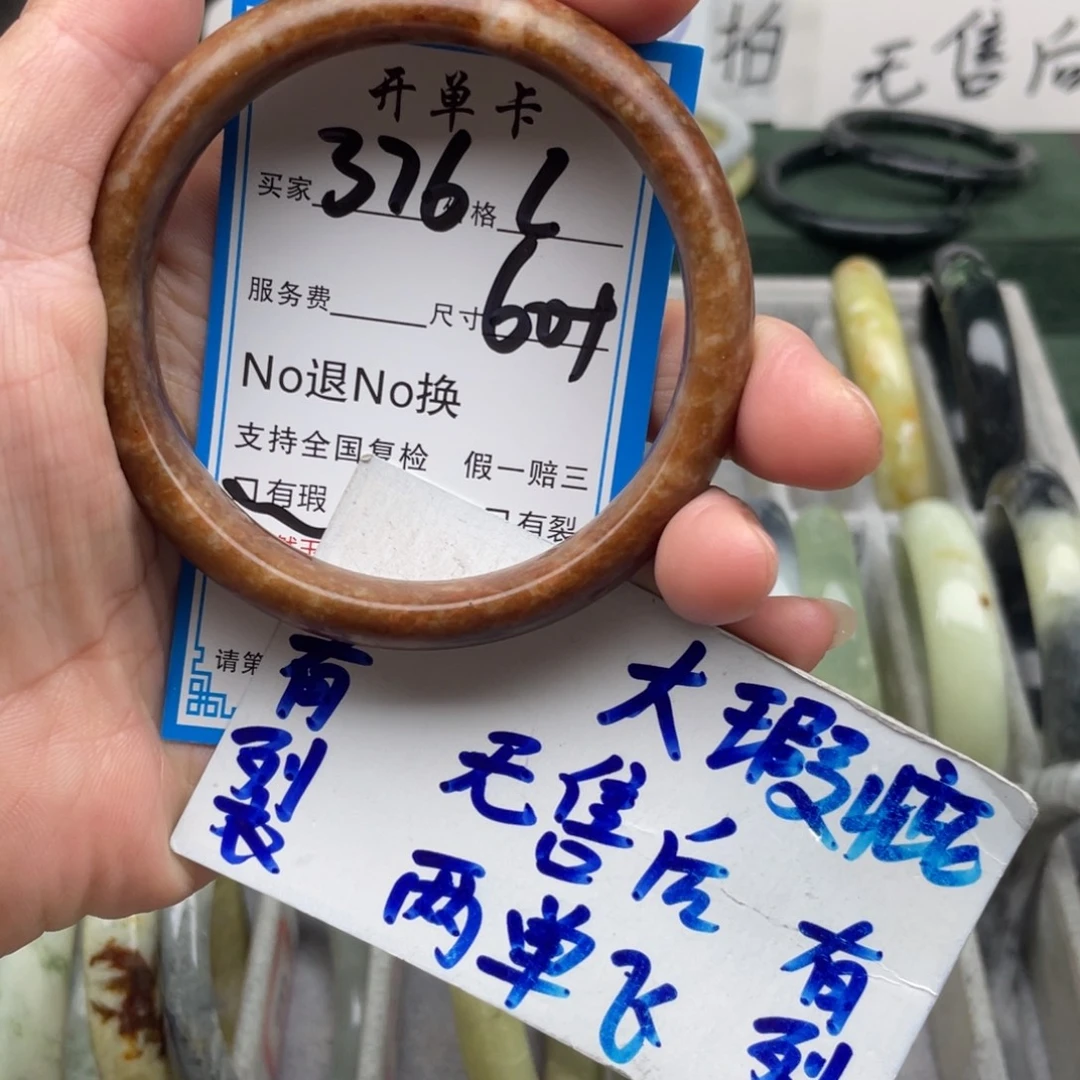 拍
无售后
开单卡
买家 376 格 L
服务费 尺寸 601
No退No换
支持全国复检 假一赔三
口有瑕 口有裂
请第
有裂
大瑕疵
无售后
两单飞
有裂